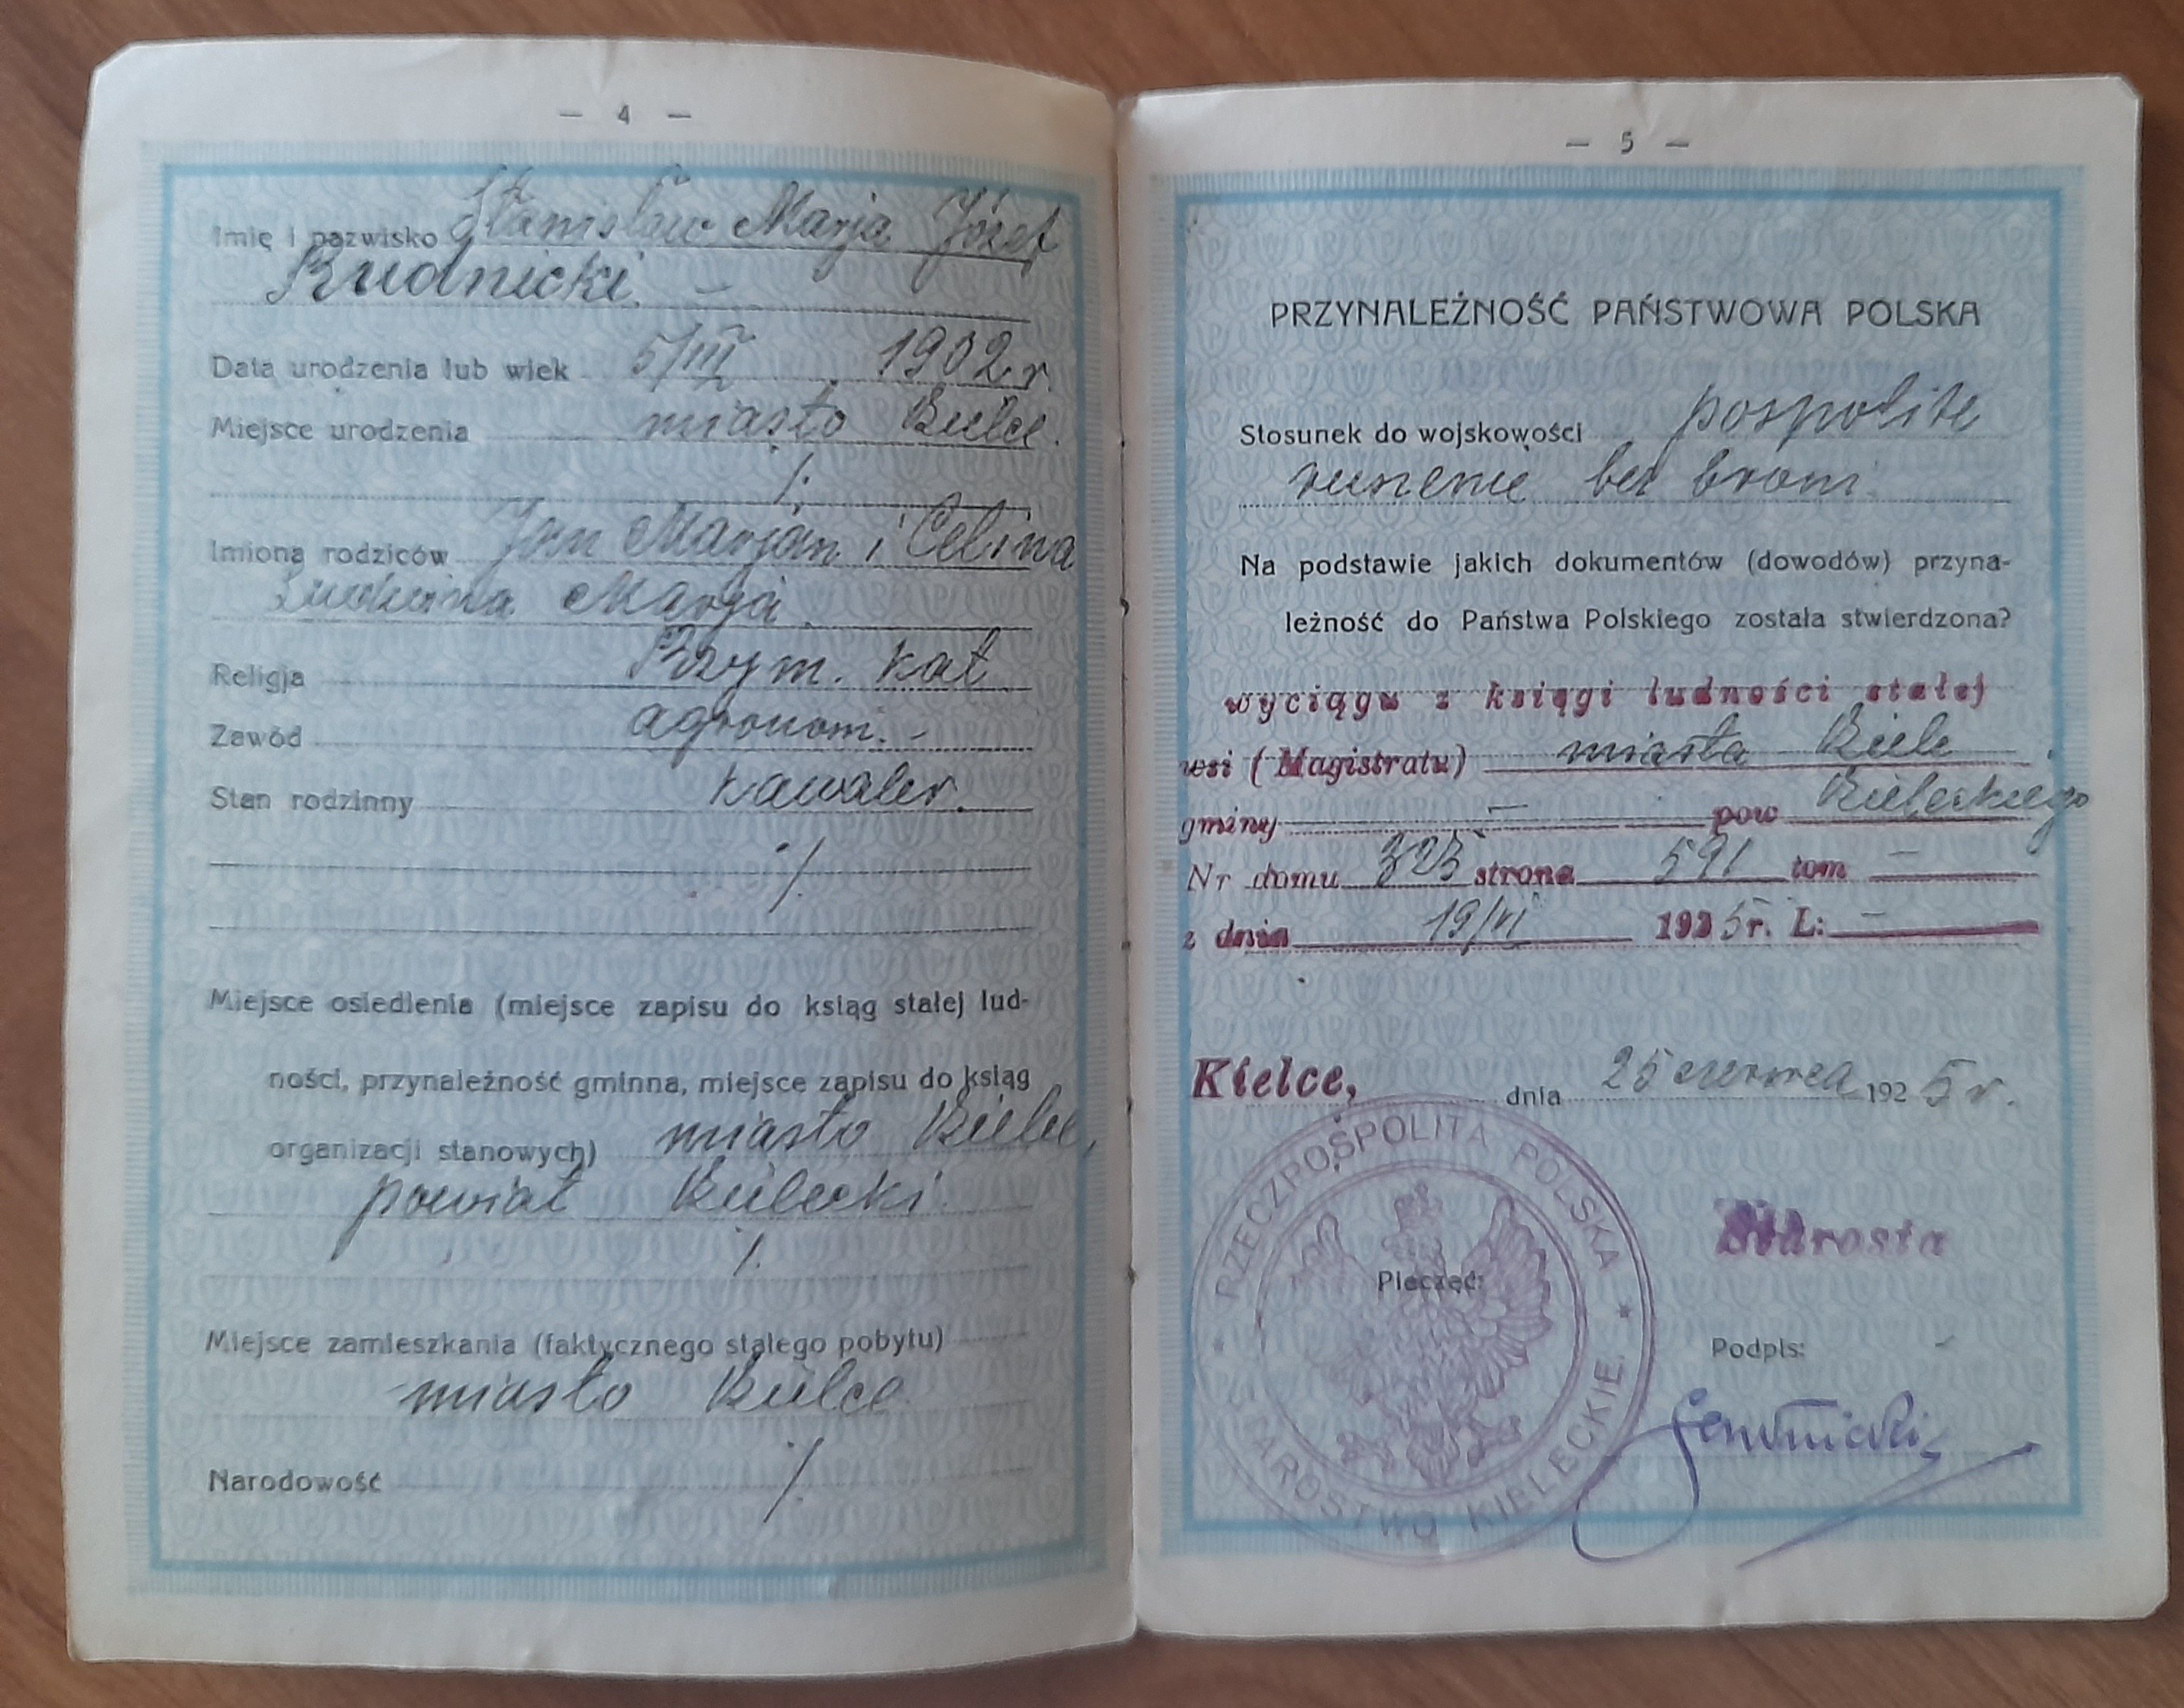 — 4 —
Imię i nazwisko Stanisław Marja Józef
Rudnicki. —
Data urodzenia lub wiek 5/III 1902 r.
Miejsce urodzenia miasto Kielce.
/.
Imiona rodziców Jan Marjan i Celina
Ludwina Marja
Religja Rzym. kat
Zawód agronom. -
Stan rodzinny kawaler.
/.
Miejsce osiedlenia (miejsce zapisu do ksiąg stałej lud-
ności, przynależność gminna, miejsce zapisu do ksiąg
organizacji stanowych) miasto Kielce,
powiat Kielecki.
/.
Miejsce zamieszkania (faktycznego stałego pobytu)
miasto Kielce
Narodowość /.
— 5 —
PRZYNALEŻNOŚĆ PAŃSTWOWA POLSKA
Stosunek do wojskowości pospolite
ruszenie bez broni
Na podstawie jakich dokumentów (dowodów) przyna-
leżność do Państwa Polskiego została stwierdzona?
wyciągu z księgi ludności stałej
wsi (Magistratu) miasta Kielc
gminy — pow Kieleckiego
Nr domu 323 strona 591 tom —
z dnia 19/VI 1925 r. L: —
Kielce, dnia 25 czerwca 1925 r.
RZECZPOSPOLITA POLSKA
* STAROSTWO KIELECKIE *
Starosta
Pieczęć:
Podpis: